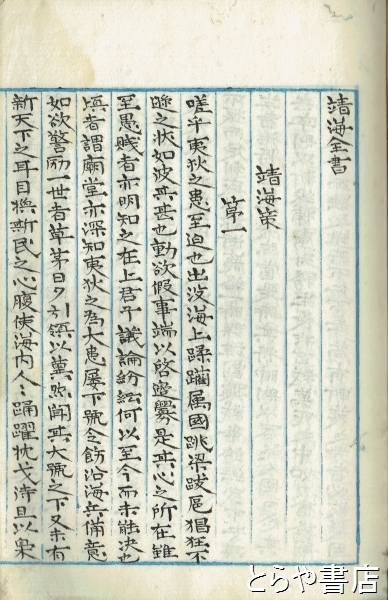 靖海全書
靖海策
第一
嗟乎夷狄之患至迫也出没海上蹂躪属國跳梁跋扈猖狂不
遜之状如彼其甚也動欲假事端以啓邊釁是其心之所在雖
至愚賤者亦明知之在上君子議論紛紜何以至今而未能決也
嗔者謂廟堂亦深知夷狄之為大患屡下號令飭沿海兵備意
如欲警励一世者草莽日夕引領以冀忽聞其大號之下又未有
新天下之耳目換新民之心腹使海内人〻踊躍枕戈待旦以梟
とらや書店